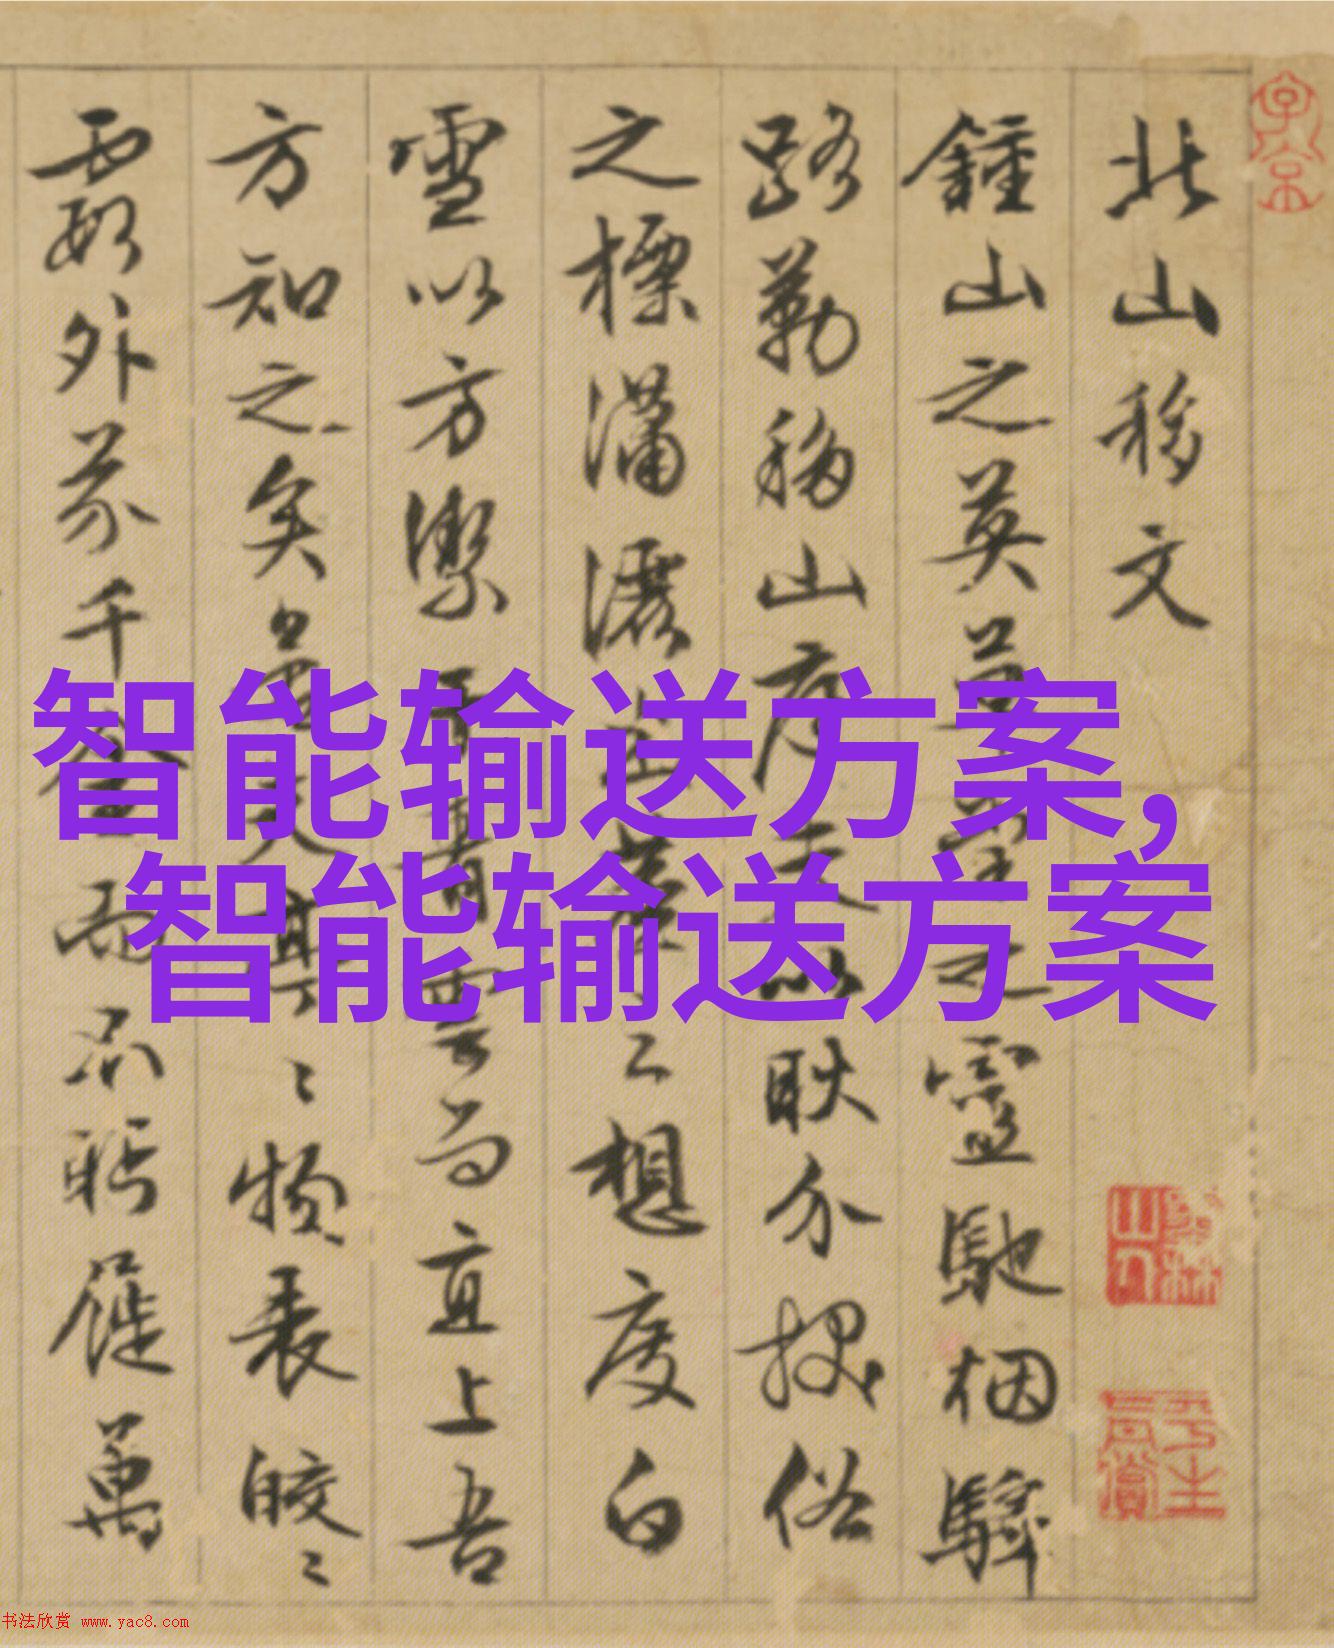 北山移文
鍾山之英草堂之靈馳烟驛
路勒移山庭夫以耿介拔俗
之標瀟灑出塵之想度白
雪以方潔干青雲而直上吾
方知之矣物表皎〻
霞外芥千金而不眄屣萬
智能输送方案,
智能输送方案
书法欣赏 www.yac8.com